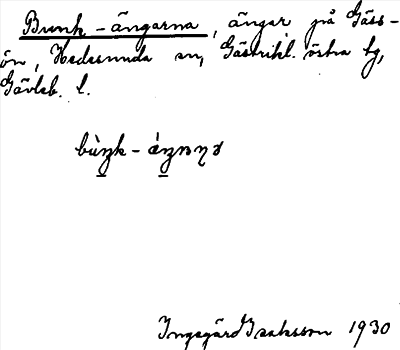 Bunk-ängarna, ängar på Gäss-
ön, Hedesunda sn, Gästrikl. östra tg,
Gävleb. l.
Ingegärd Isaksson 1930